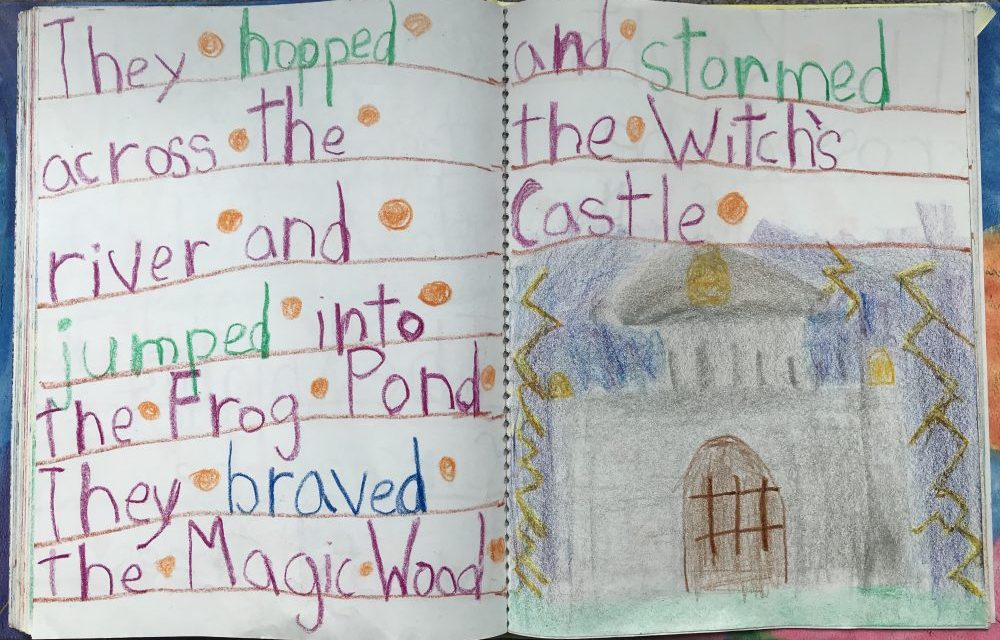 They hopped
across the
river and
jumped into
the Frog Pond
They braved
the Magic Wood
and stormed
the Witch's
Castle